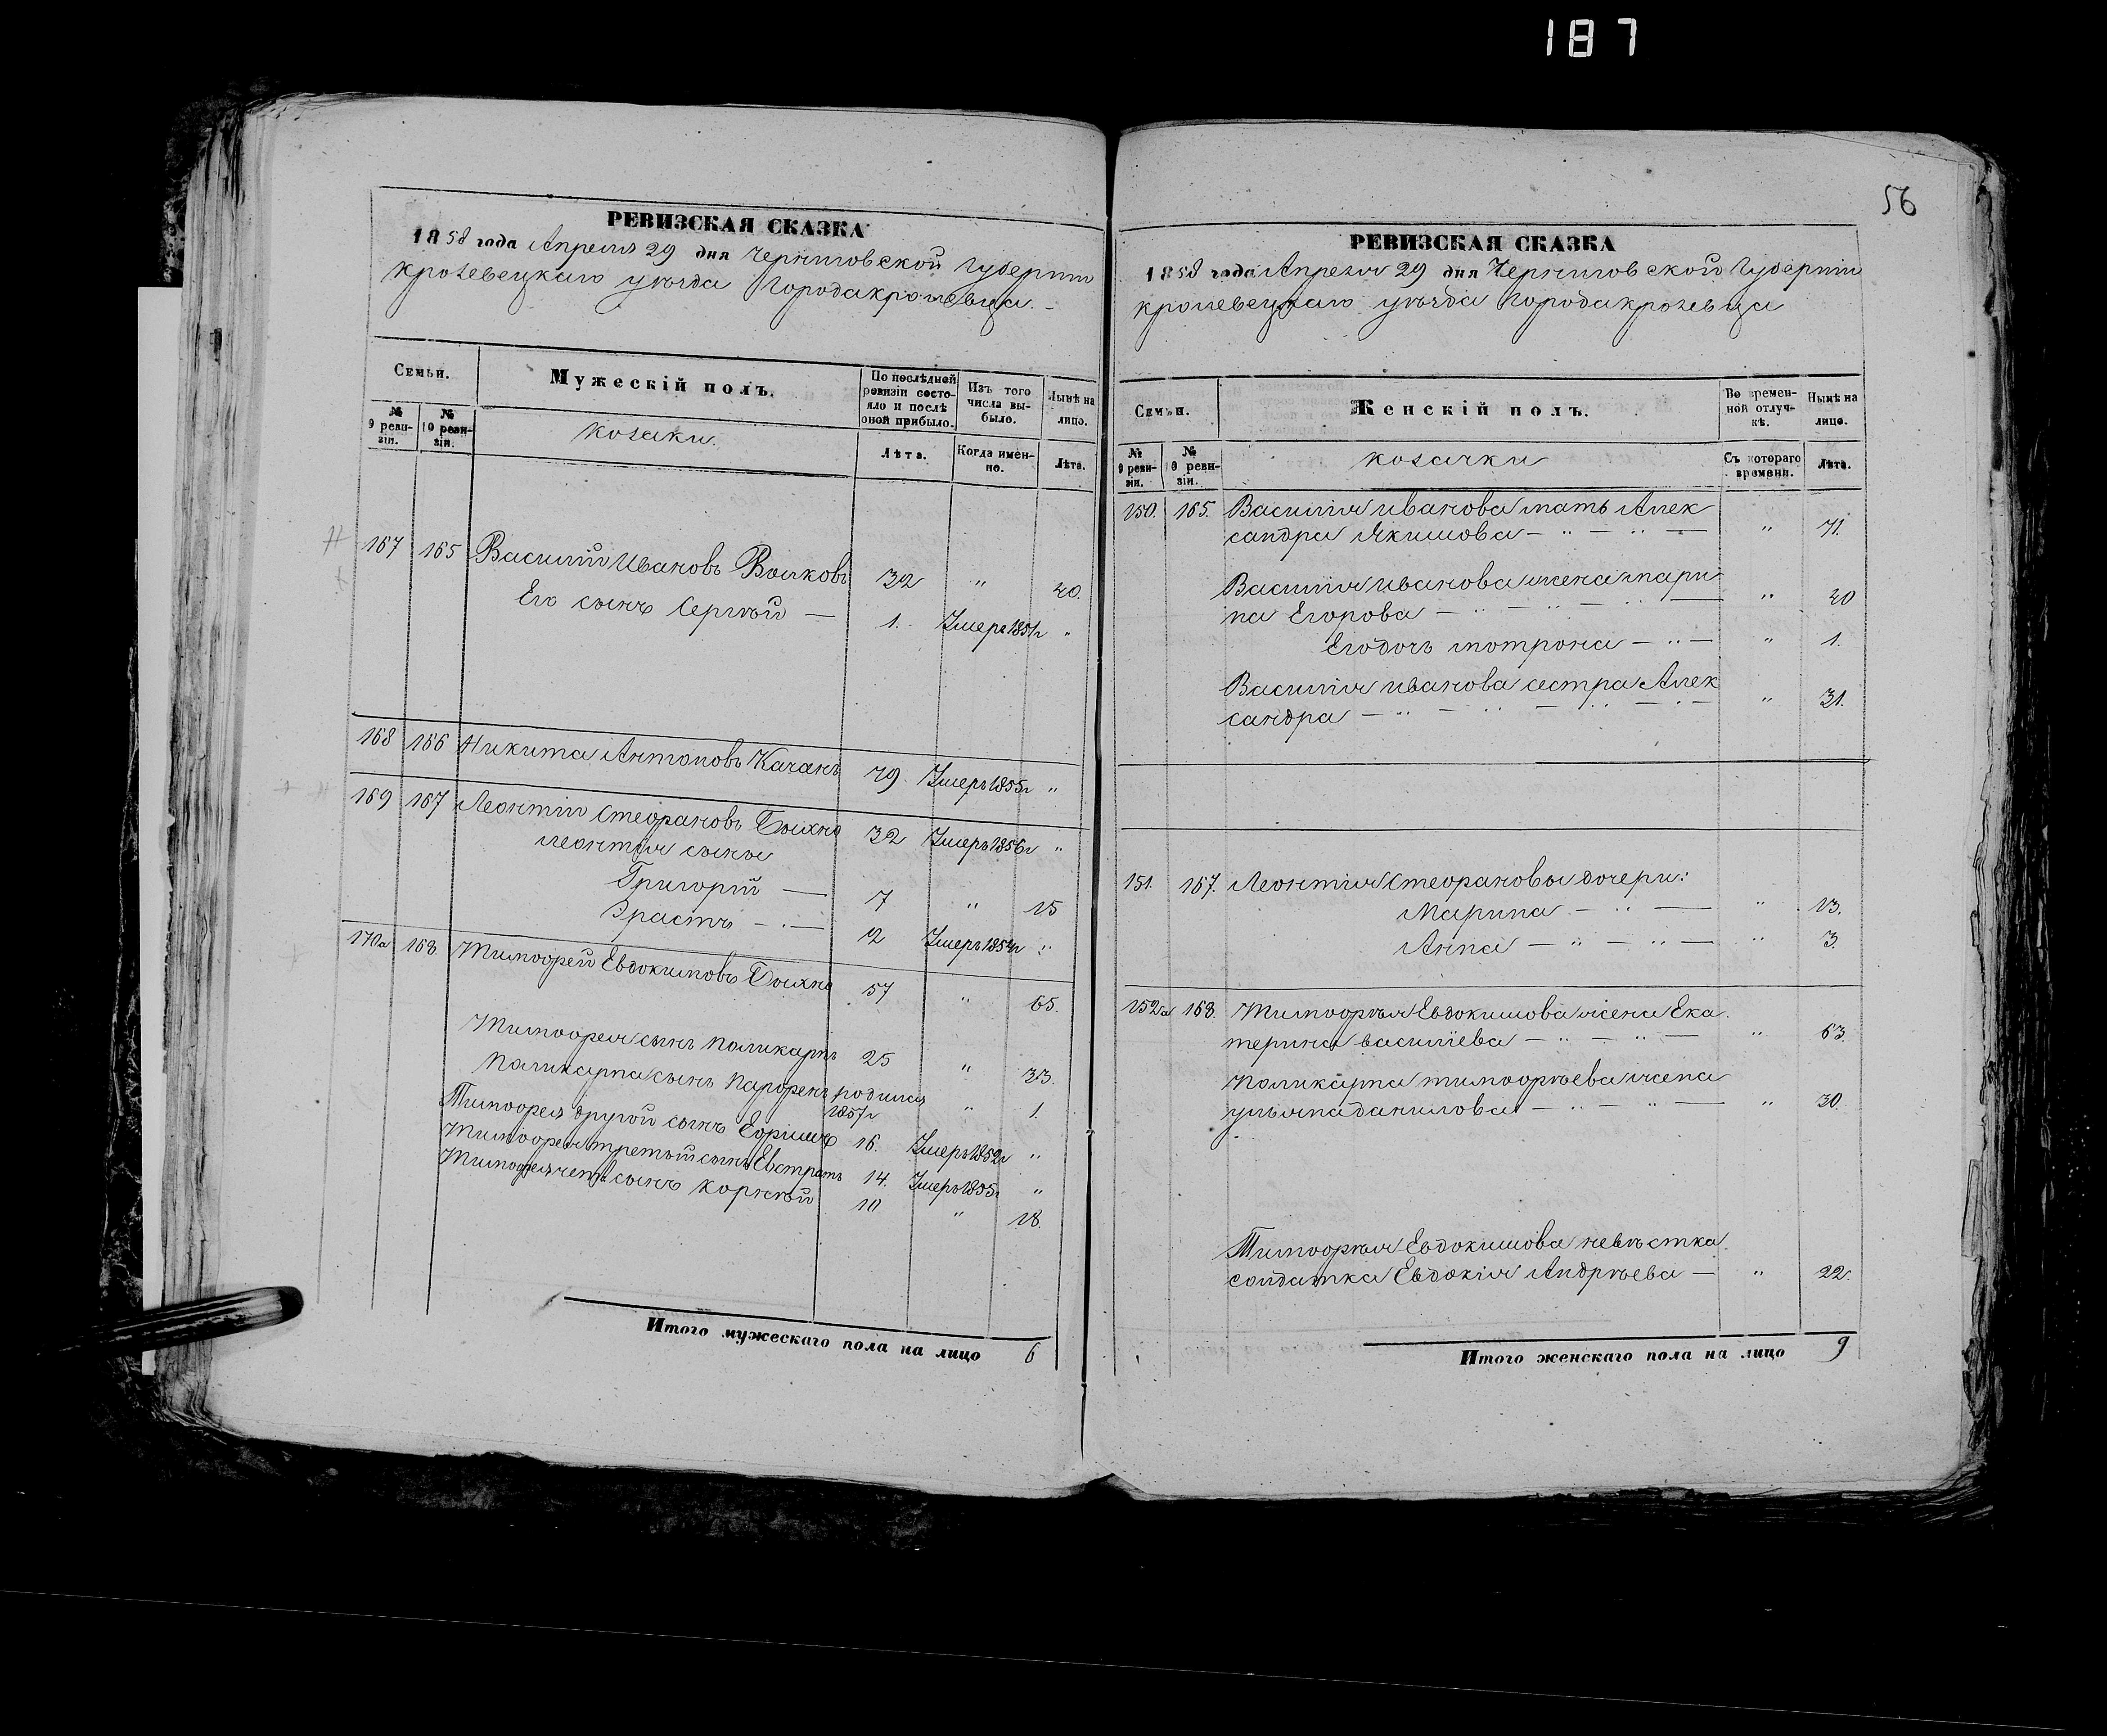 187
56
РЕВИЗСКАЯ СКАЗКА
1858 года Апреля 29 дня Черниговской Губернии
кролевецкаго уѣзда Города кролевца. -
Семьи.
Мужескій полъ.
По послѣдней ревизіи состояло и послѣ оной прибыло.
Изъ того числа выбыло.
Нынѣ на лицо.
№ 9 ревизіи.
№ 10 ревизіи.
козаки.
Лѣта.
Когда именно.
Лѣта.
167 165 Василий Ивановъ Волковъ 32 " 40.
Его сынъ Сергѣй — 1. Умеръ 1851г "
168 166 Никита Антоновъ Качанъ 79. Умеръ 1855г "
169 167 Леонтій Стефановъ Быхно 32 Умеръ 1856г "
Леонтія сыны
Григорій — 7 " 15
Эрастъ — 2 Умеръ 1854г "
170а 168. Тимофей Евдокимовъ Быхно 57 " 65.
Тимофея сынъ Поликарпъ 25 " 33.
Поликарпа сынъ Парфенъ родился 1857г " 1.
Тимофея другой сынъ Ефримъ 16. Умеръ 1852г "
Тимофея третьій сынъ Евстратъ 14. Умеръ 1855г "
Тимофея четв сынъ Корнѣй 10 " 18.
Итого мужескаго пола на лицо 6
РЕВИЗСКАЯ СКАЗКА
1858 года Апреля 29 дня Черниговской Губерніи
кролевецкаго уѣзда Города кролевца
Семьи.
Женскій полъ.
Во временной отлучкѣ.
Нынѣ на лицо.
№ 9 ревизіи.
№ 10 ревизіи.
козачки
Съ котораго времени.
Лѣта.
150. 165. Василія Иванова мать Алек
сандра Якимова — " — " — " 71.
Василія Иванова жена мари
на Егорова — " — " — " — " 40
Его дочъ мотрона — " — " 1.
Василія Иванова сестра Алек
сандра — " — " — " — " — " 31.
151. 167. Леонтія Стефановы дочери:
Марина — " — " 13.
Анна — " — " — " 3.
152а 168. Тимофѣя Евдокимова жена Ека
терина василіева — " — " — " 63.
Поликарпа тимофѣева жена
ульяна данилова — " — " — " 30.
Тимофѣя Евдокимова невѣстка
солдатка Евдокія Андрѣева — " 22.
Итого женскаго пола на лицо 9